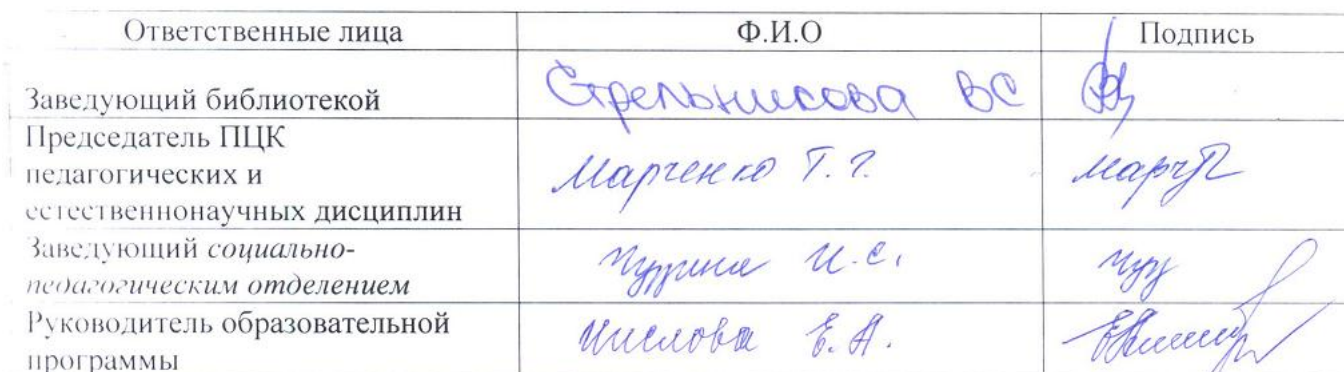 Ответственные лица Ф.И.О Подпись
Заведующий библиотекой Стрельникова ВС
Председатель ПЦК
педагогических и Марченко Т. Г.
естественнонаучных дисциплин
Заведующий социально-
педагогическим отделением И.С.
Руководитель образовательной Е.А.
программы